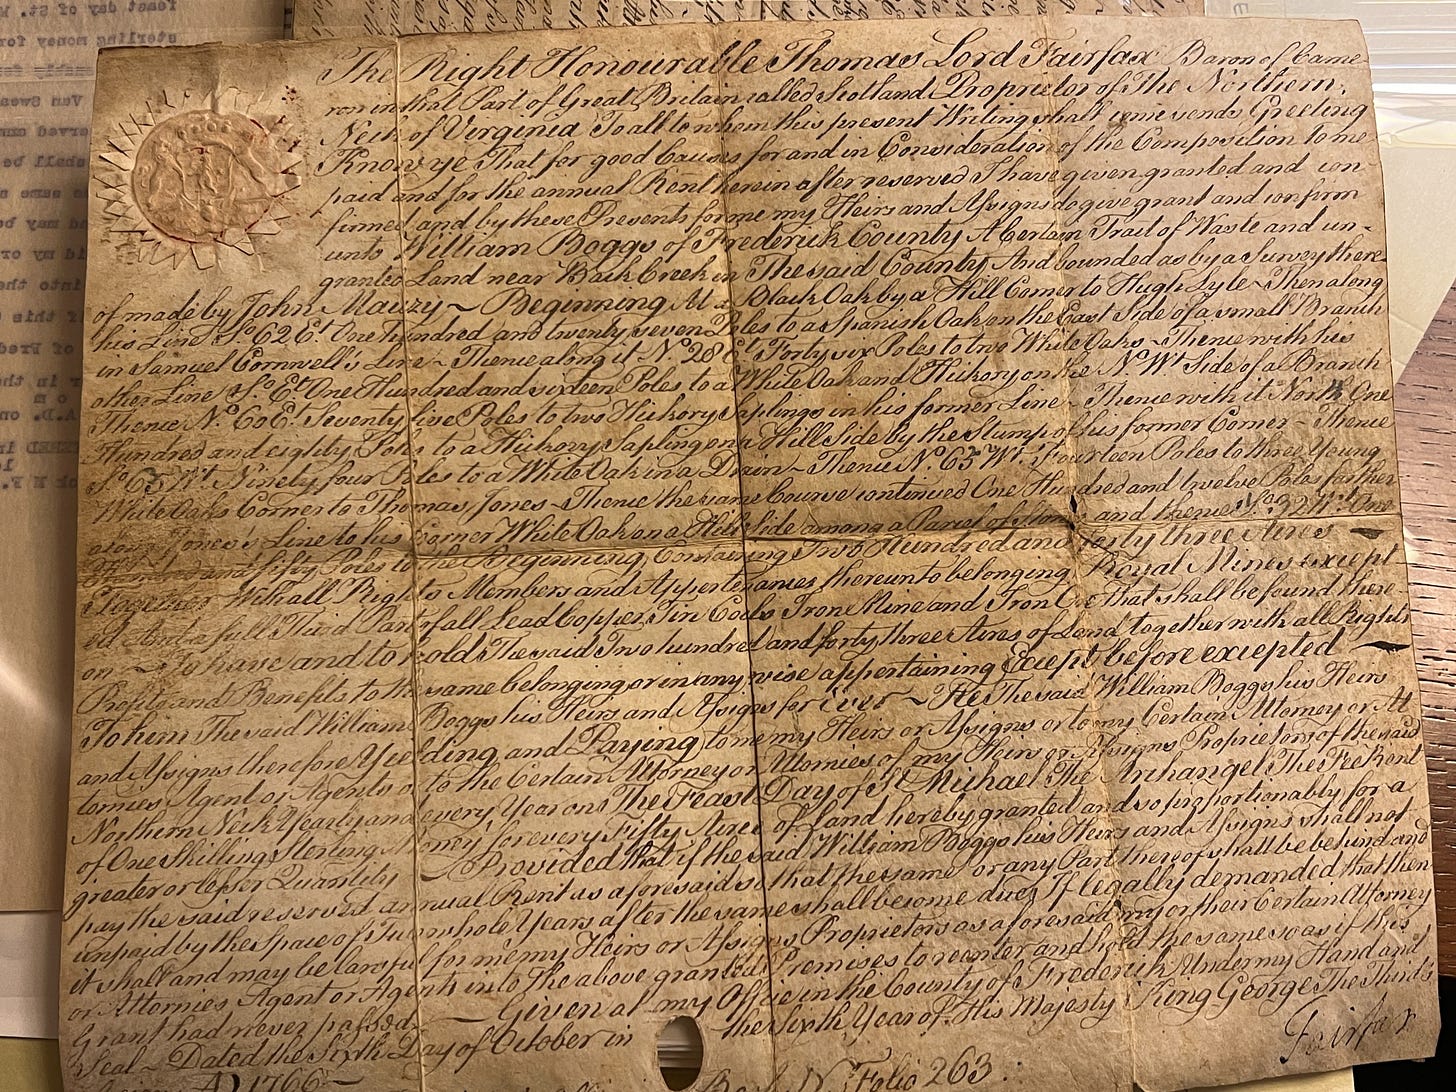 The Right Honourable Thomas Lord Fairfax Baron of Came
ron in that Part of Great Britain called Scotland Proprietor of The Northern
Neck of Virginia To all to whom this present Writing shall come sends Greeting
Know ye That for good Causes for and in Consideration of the Composition to me
paid and for the annual Rent herein after reserved I have given granted and con-
firmed and by these Presents for me my Heirs and Assigns do give grant and confirm
unto William Boggs of Frederick County A Certain Tract of Waste and un-
granted Land near Back Creek in The said County And bounded as by a Survey there
of made by John Mauzy ~ Beginning At a Black Oak by a Hill Corner to Hugh Lyle ~ Then along
his Line So. 62 Et. One hundred and twenty seven Poles to a Spanish Oak on the East Side of a small Branch
in Samuel Cornwell's Line ~ Thence along it No. 28 Et. Forty six Poles to two White Oaks ~ Thence with his
other Line So. Et. One Hundred and sixteen Poles to a White Oak and Hickory on the No. Wt. Side of a Branch
Thence No. 60 Et. Seventy five Poles to two Hickory Saplings in his former Line Thence with it North One
Hundred and eighty Poles to a Hickory Sapling on a Hill Side by the Stump of his former Corner ~ Thence
So. 65 Wt. Ninety four Poles to a White Oak in a ~ Thence No. 65 Wt. Fourteen Poles to three Young
White Oaks Corner to Thomas Jones ~ Thence the same Course continued One Hundred and twelve Poles farther
along Jones's Line to his Corner White Oak on a Hill side among a Parcel of and thence So. 32 Wt. One
Hundred and fifty Poles to the Beginning Containing Two Hundred and forty three Acres
Together With all Rights Members and Appurtenances thereunto belonging Royal Mines except
ed And a full Third Part of all Lead Copper Tin Coals Iron Mine and Iron Ore that shall be found there
on ~ To have and to hold The said Two hundred and forty three Acres of Land together with all Rights
Profits and Benefits to the same belonging or in any wise appertaining Except before excepted
To him The said William Boggs his Heirs and Assigns for ever ~ He The said William Boggs his Heirs
and Assigns therefore Yeelding and Paying to me my Heirs or Assigns or to my Certain Attorney or At
tornies Agent or Agents or to the Certain Attorney or Attornies of my Heirs or Assigns Proprietors of the said
Northern Neck Yearly and every Year on The Feast Day of St Michael The Archangel The Fee Rent
of One Shilling Sterling Money for every Fifty Acres of Land hereby granted and so proportionably for a
greater or lesser Quantity ~ Provided That if the said William Boggs his Heirs and Assigns shall not
pay the said reserved annual Rent as aforesaid so that the same or any Part thereof shall be behind and
unpaid by the Space of Two whole Years after the same shall become due If legally demanded that then
it shall and may be lawful for me my Heirs or Assigns Proprietors as aforesaid my or their Certain Attorney
or Attornies Agent or Agents into The above granted Premises to reenter and hold the same so as if this
Grant had never passed ~ Given at my Office in the County of Frederick Under my Hand and
Seal ~ Dated the Sixth Day of October in the Sixth Year of His Majesty King George The Third's
AD 1766 ~
Fairfax
Folio 263